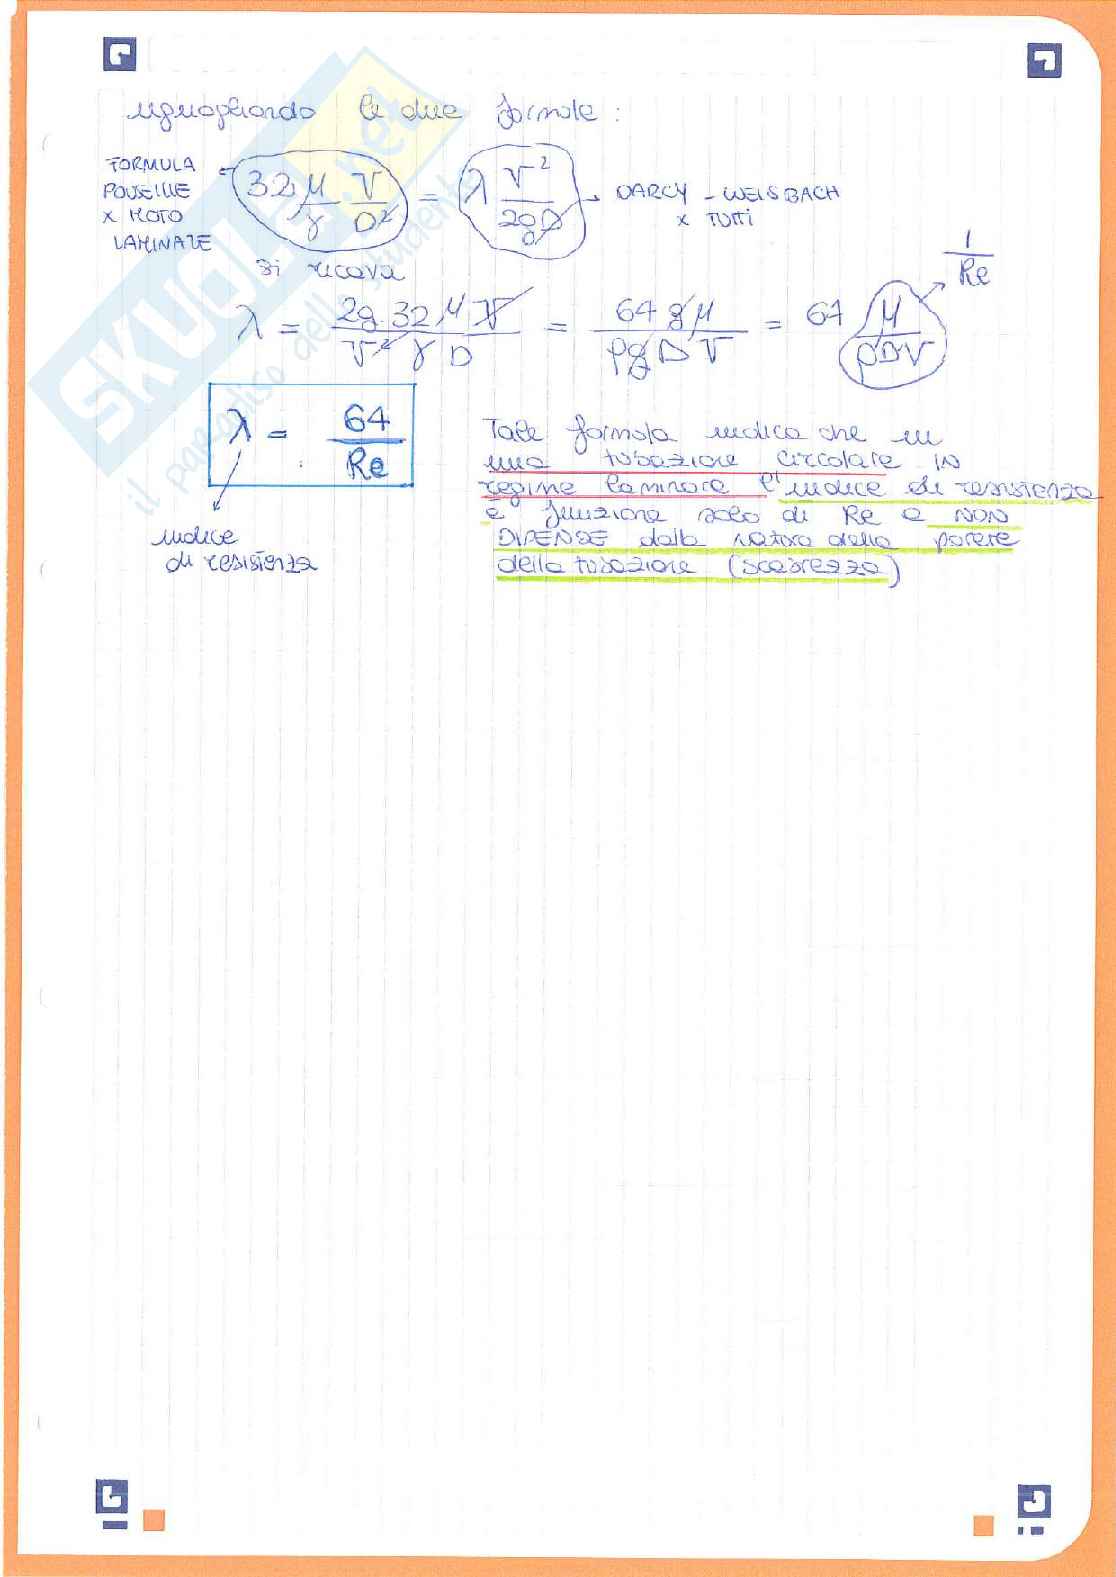 uguagliando le due formule:
FORMULA
POUSEILLE
x MOTO
LAMINARE
32 μ/γ V/D² = λ V²/2gD
DARCY - WEISBACH
x TUTTI
si ricava
1/Re
λ = 2g 32 μ V / V² γ D = 64 g μ / ρ g D V = 64 μ / ρ D V
λ = 64/Re
indice
di resistenza
Tale formula indica che in
una tubazione circolare in
regime laminare l'indice di resistenza
è funzione solo di Re e NON
DIPENDE dalla natura della parete
della tubazione (scabrezza)
SKUOLA.net
il paradiso dello studente